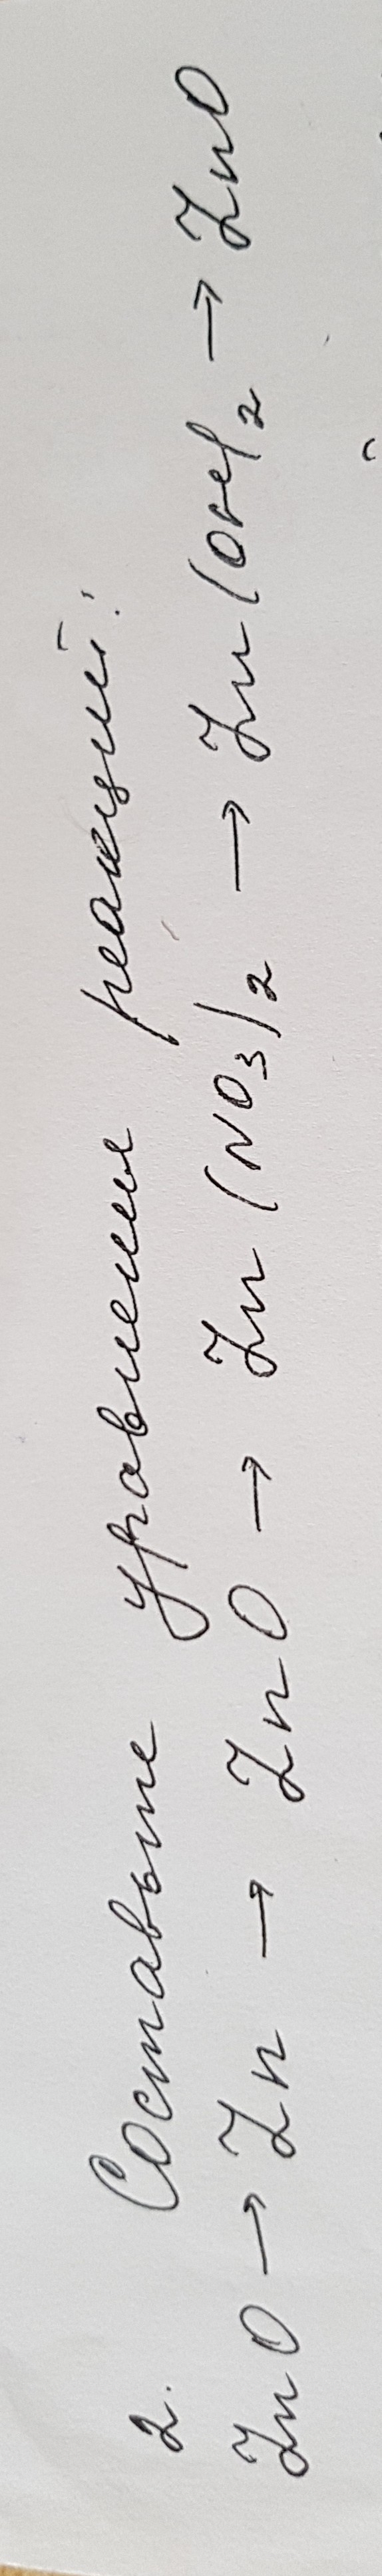 2. Составьте уравнения реакций:
ZnO → Zn → ZnO → Zn(NO₃)₂ → Zn(OH)₂ → ZnO